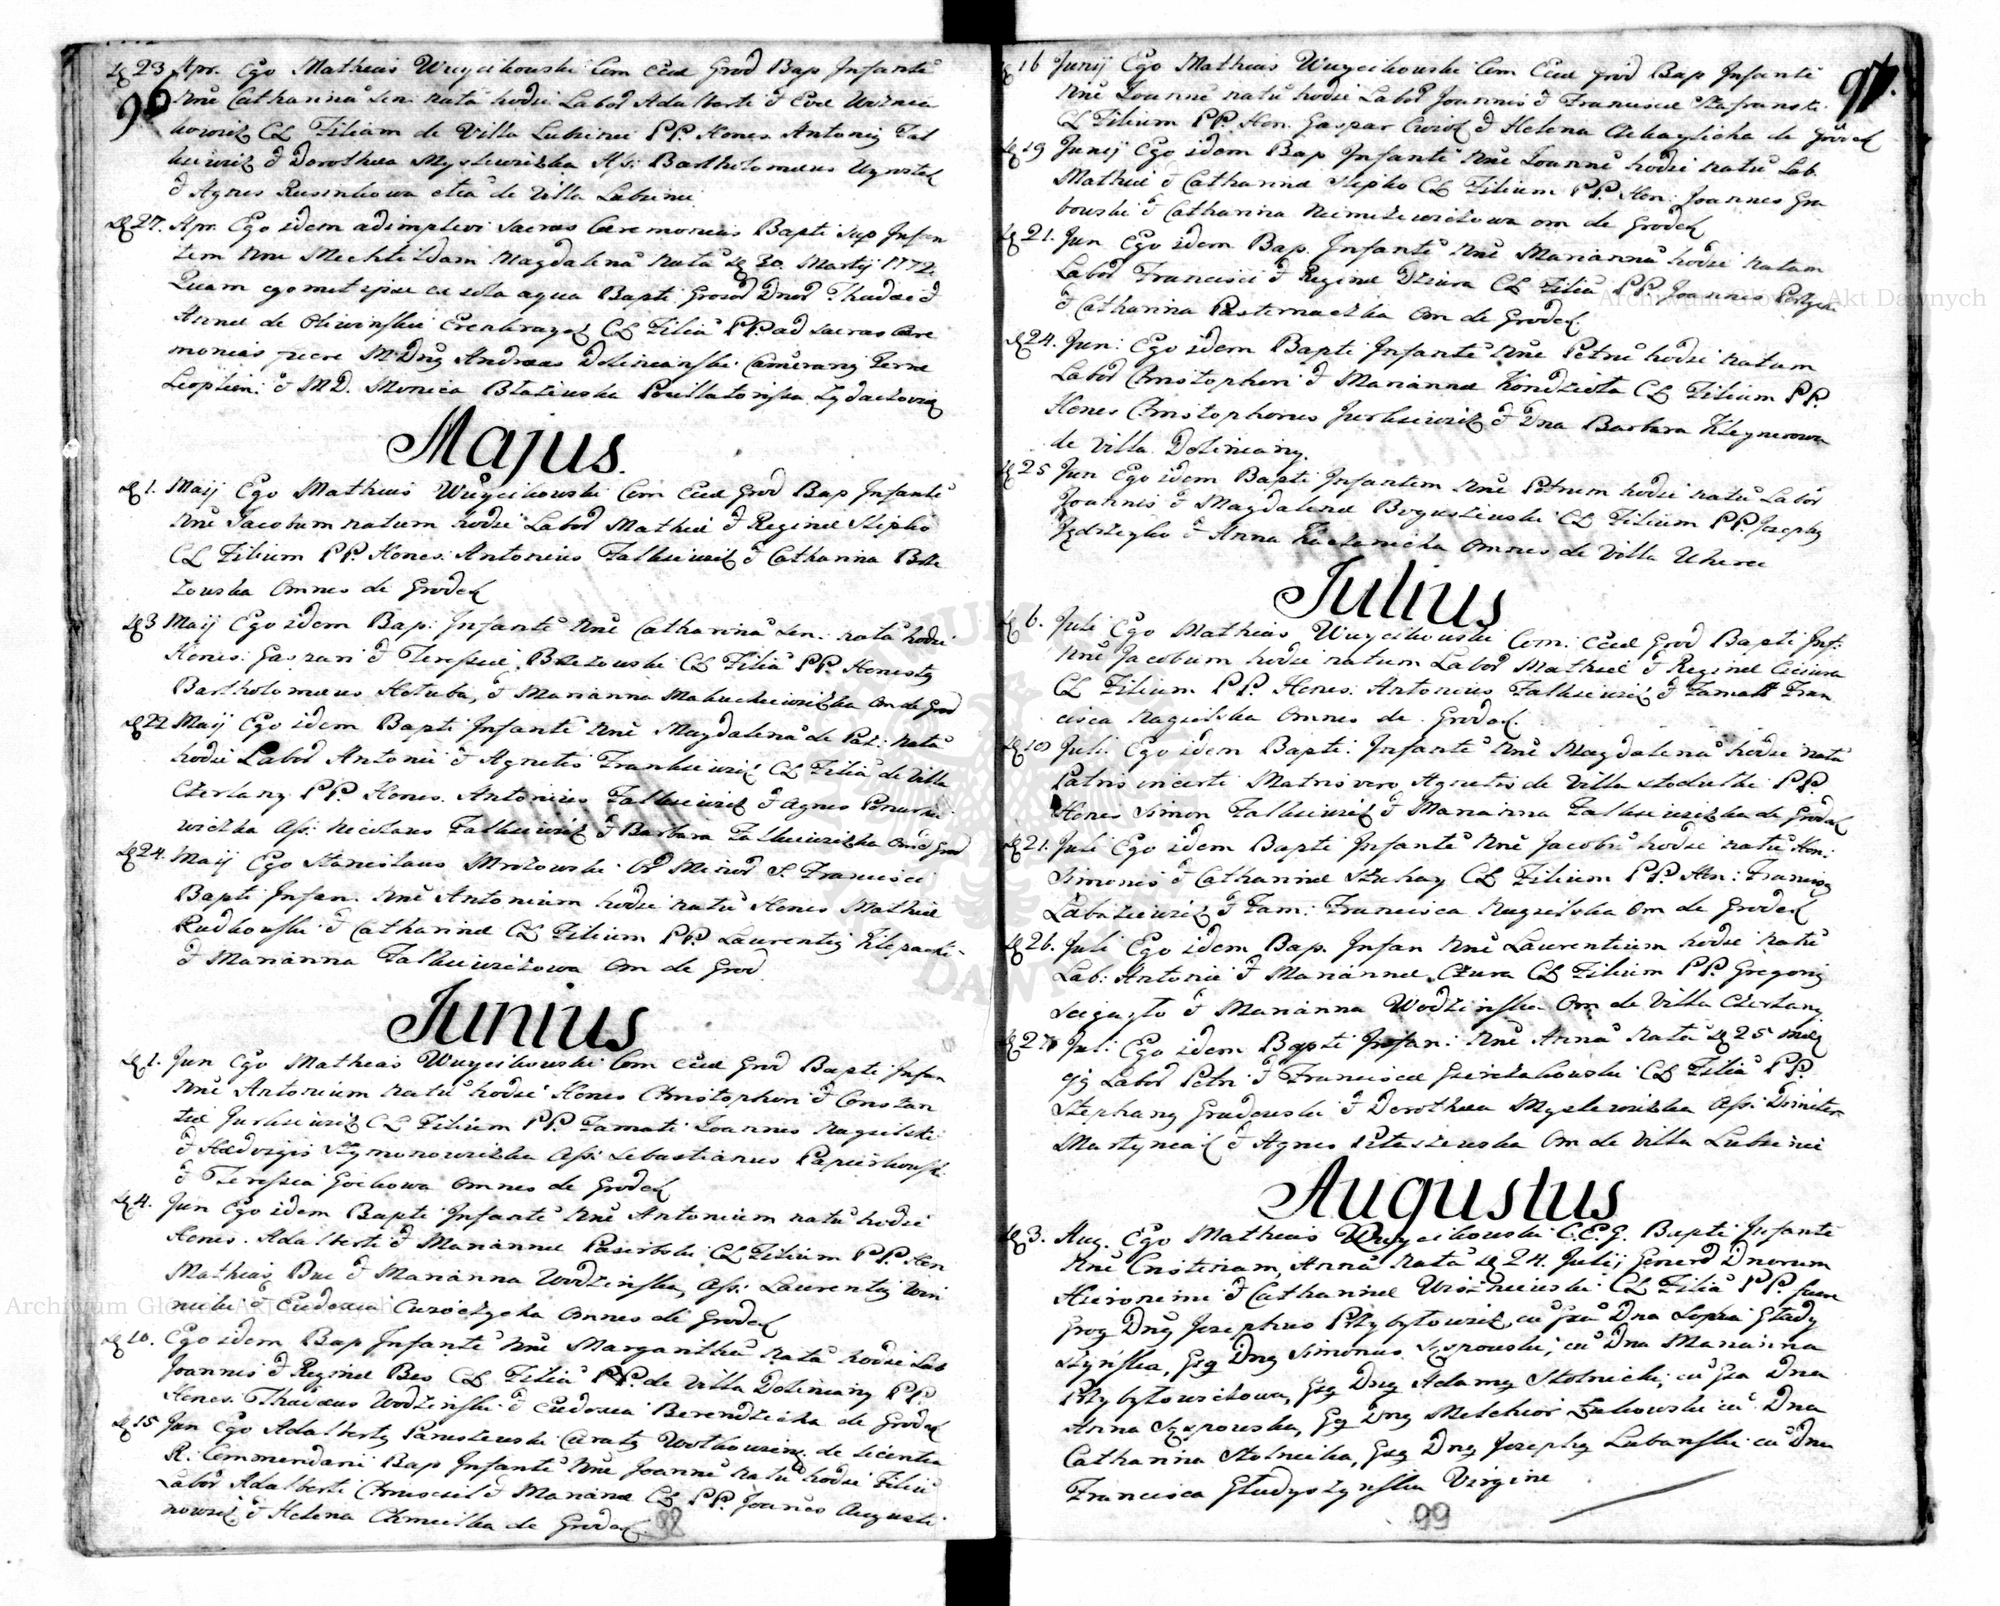 96
D 23 Apr. Ego Mathias Wuycikowski Com Eccl Grod Bap Infante
Nne Catharina Sen. nata hodie Labor Adalberti & Evæ
CL Filiam de Villa Lubieni PP. Hones. Antonig Fal
kiewicz & Dorothea Myslewiczka Ass: Bartholomæus
& Agnes Rusinkowa etia de Villa Lubieni
D 27. Apr. Ego idem adimplevi sacras Cæremonias Bapti sup Infan
tem Nne Mechtildam Magdalena Nata D 30. Martij 1772.
Quam egomet ipse ex sola aqua Bapti Gnosor Dnor Thadæi &
Annæ de Oliwinskie CL Filia PP. ad sacras Cære
monias fuere M. Dng Andreas Dolinianski Camerarig Terræ
Leoplien: & MD. Monica Błażiewska Pocillatorissa Zydaczovien
Majus.
D 1. Maij Ego Mathias Wuycikowski Com Eccl Grod Bap Infante
Nne Jacobum natum hodie Labor Mathiæ & Reginæ Slipko
CL Filium PP. Hones: Antonius Falkiewicz & Catharina Brze
zowska Omnes de Grodek
D 3 Maij Ego idem Bap: Infante Nne Catharina Sen: nata hodie
Hones: Gaspari & Theresiæ Brzezowski CL Filia PP. Honestg
Bartholomæus Hołuba, & Marianna om de Grod
D 22 Maij Ego idem Bapti Infante Nne Magdalena de Paz: nata
hodie Labor Antonii & Agnetis Frankiewicz CL Filia de Villa
Czerlany PP. Hones. Antonius Falkiewicz & Agnes
wiczka Ass: Nicolaus Falkiewicz & Barbara Falkiewiczka Om de Grod
D 24. Maij Ego Stanislaus Mrozowski Or Minor S. Francisci
Bapti Infan. Nne Antonium hodie natu Hones Mathiæ
Rudkowski & Catharinæ CL Filium PP. Laurentig Klepacki
& Marianna Falkiewiczowa Om de Grod
Junius
D 1. Jun Ego Mathias Wuycikowski Com Eccl Grod Bapti Infan
Nne Antonium natu hodie Hones Christophori & Constan
tiæ Jurkiewicz CL Filium PP. Famati Ioannes Nagielski
& Hedvigis Szymonowiczka Ass: Sebastianus
& Theressia Goikowa Omnes de Grodek
D 4. Jun Ego idem Bapti Infante Nne Antonium natu hodie
Hones. Adalberti & Mariannæ Pasierbski CL Filium PP. Hon
Mathias Buc & Marianna Wodzinska, Ass: Laurentig Win
nicki & Eudoxia Omnes de Grodek
D 10. Ego idem Bap Infante Nne Margaritha nata hodie Lab
Joannis & Reginæ Bes CL Filia PP. de Villa Doliniany PP.
Hones. Thadæus Wodzinski & Eudoxia Berendzicka de Grodek
D 15 Jun Ego Adalbertg Paruszewski Curatg de licentia
R. Commendarii Bap Infante Nne Joanne natu hodie Filiu
Labor Adalberti Chrusciel & Mariannæ CL PP. Joannes Augusti
nowicz & Helena Chmielka de Grodek.
98
97.
D 16 Junij Ego Mathias Wuycikowski Com Eccl Grod Bap Infante
Nne Ioanne natu hodie Labor Joannis & Franciscæ Szafransk.
CL Filium PP. Hon. Gaspar & Helena de Grodek
D 19 Junij Ego idem Bap Infante Nne Ioanne hodie natu Lab.
Mathiæ & Catharinæ Slipko CL Filium PP. Hon: Joannes Gra
bowski & Catharina Niemczewiczowa om de Grodek
D 21. Jun Ego idem Bap. Infante Nne Marianna hodie natam
Labor Francisci & Reginæ Dziura CL Filia PP. Joannes
& Catharina Pasternaczka Om de Grodek.
D 24. Jun: Ego idem Bapti Infante Nne Petru hodie natum
Labor Christophori & Mariannæ Kondziola CL Filium PP.
Hones Christophorus Jurkiewicz & Dna Barbara Kleynerowa
de Villa Doliniany.
D 25 Jun Ego idem Bapti Infantem Nne Petrum hodie natu Labor
Joannis & Magdalenæ Boguszewski CL Filium PP. Josephg
& Anna Omnes de Villa Uherce
Iulius
D 6. Juli Ego Mathias Wuycikowski Com: Eccl Grod Bapti Inf:
Nne Jacobum hodie natum Labor Mathiæ & Reginæ Ciciura
CL Filium PP. Hones: Antonius Falkiewicz & Famata Fran
cisca Nagielska Omnes de Grodek.
D 10 Juli Ego idem Bapti: Infante Nne Magdalena hodie nata
Patris incerti Matris vero Agnetis de Villa Stodulki PP.
Hones Simon Falkiewicz & Marianna Falkiewiczka de Grodek
D 21. Juli Ego idem Bapti Infante Nne Jacobu hodie natu Hon:
Simonis & Catharinæ CL Filium PP. Hon: Franciscg
& Fam: Francisca Nagielska Om de Grodek
D 26. Juli Ego idem Bap. Infan Nne Laurentium hodie natu
Lab: Antonii & Mariannæ Czura CL Filium PP. Gregorig
& Marianna Wodzinska Om de Villa Czerlany.
D 27 Jul: Ego idem Bapti Infan: Nne Anna nata D 25
Labor Petri & Franciscæ CL Filia PP.
Stephang Gradowski & Dorothea Myslewiczka Ass: Dimiter
Martyniak & Agnes Om de Villa Lubieni
Augustus
D 3. Aug. Ego Mathias Wuycikowski C.E.G. Bapti Infante
Nne Cristinam, Anna nata D 24. Julij, Generor Dnorum
Hieronimi & Catharinæ Wozniewski CL Filia PP. fuere
Grosg Dng Josephus Przybyłowicz, cu Gsa Dna Sophia Gładys
szyńska, Gsg Dng Simonus cu Dna Marianna
Przybyłowiczowa, Gsg Dng Adamg Stolnicki, cu Gsa Dna
Anna Gsg Dng Melchior Żukowski cu Dna
Catharina Stolnicka, Gsg Dng Josephg Lubanski cu Dna
Francisca Gładyszynska Virgine
99
Archiwum Główne Akt Dawnych
Archiwum Główne Akt Dawnych